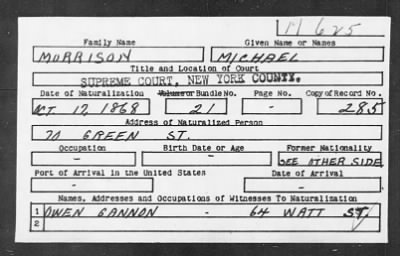 M 625
Family Name Given Name or Names
MORRISON MICHAEL
Title and Location of Court
SUPREME COURT, NEW YORK COUNTY.
Date of Naturalization Volume or Bundle No. Page No. Copy of Record No.
OCT. 17, 1868 21 - 285
Address of Naturalized Person
70 GREEN ST.
Occupation Birth Date or Age Former Nationality
- - SEE OTHER SIDE
Port of Arrival in the United States Date of Arrival
- -
Names, Addresses and Occupations of Witnesses To Naturalization
1 OWEN GANNON - 64 WATT ST.
2